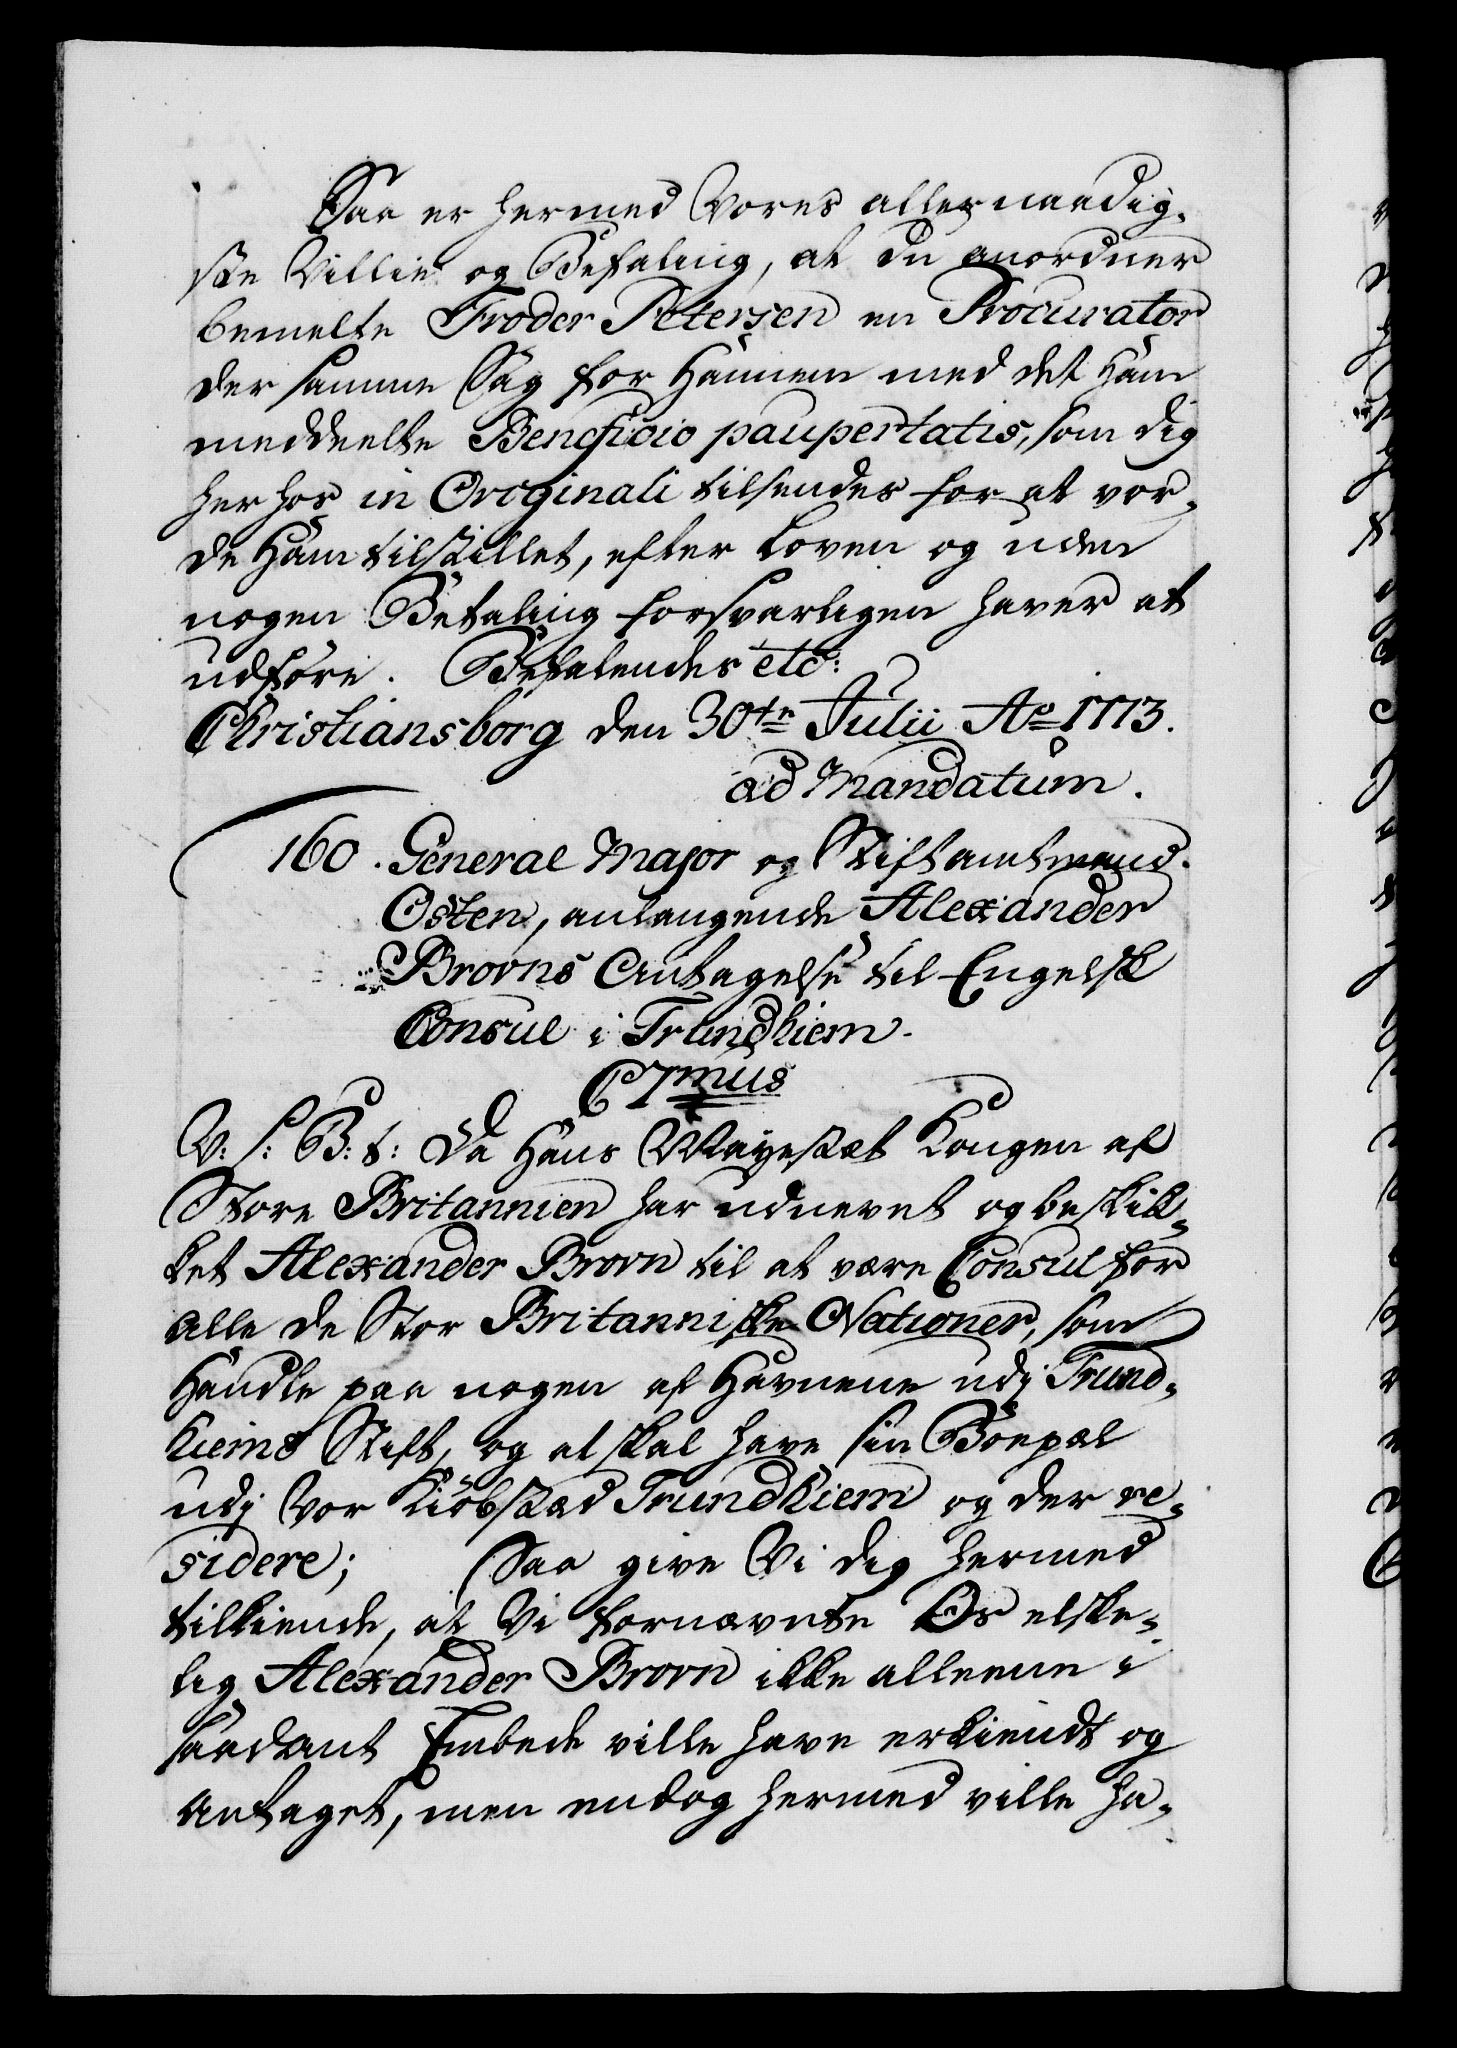 Saa er hermed Vores allernaadig-
ste Villie og Befaling, at du anordner
bemelte Troder Petersen en Procurator
der samme Sag for Hannem med det Ham
meddeelte Beneficio paupertatis, som dig
her hos in Originali tilsendes for at vor-
de Ham tilstillet, efter Loven og uden
nogen Betaling forsvarligen haver at
udføre. Befalendes etc:
Christiansborg den 30te Julii Ao 1773.
ad Mandatum.
160. General Major og Stiftamtmand
Osten, anlangende Alexander
Brovns Antagelse til Engelsk
Consul i Trundhiem.
C 7mus
V: S: B: t: Da Hans Mayestæt Kongen af
Store Britannien har udnevnt og beskik-
ket Alexander Brovn til at være Consul for
alle de Stor Britanniske Nationer, som
Handle paa nogen af Havnene udj Trund-
hiems Stift, og at skal have sin Bøepæl
udj Vor Kiøbstæd Trundhiem og der re-
sidere; Saa give Vi dig hermed
tilkiende, at Vi fornævnte Os elske-
lig Alexander Brovn ikke alleene i
saadant Embede ville have erkiendt og
Antaget, men endog hermed ville ha-